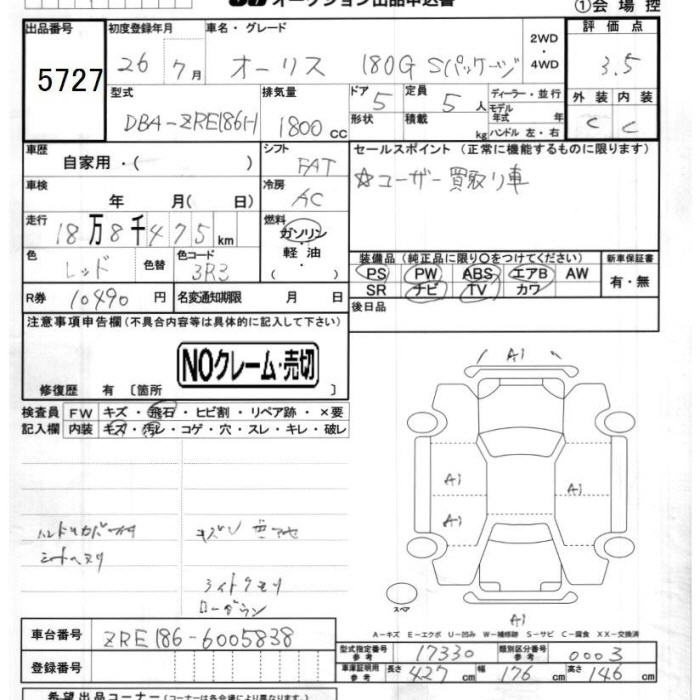 オークション出品申込書
①会場控
出品番号 初度登録年月 車名・グレード 2WD・4WD 評価点
5727 26 7月 オーリス 180G Sパッケージ 3.5
型式 排気量 ドア 5 定員 5人 ディーラー・並行 外装 内装
DBA-ZRE186H 1800cc 形状 積載 kg モデル年式 年 ハンドル 左・右 C C
車歴 自家用・( ) シフト FAT セールスポイント (正常に機能するものに限ります)
車検 年 月( 日) 冷房 AC ☆ユーザー買取り車
走行 18万8千475km 燃料 ガソリン・軽油・( )
色 レッド 色替 色コード 3R3 装備品 (純正品に限り○をつけてください) 新車保証書
PS PW ABS エアB AW 有・無
SR ナビ TV カワ
R券 10490円 名変通知期限 月 日 後日品
注意事項申告欄 (不具合内容等は具体的に記入して下さい)
NOクレーム・売切
修復歴 有 [箇所 ]
検査員 FW キズ・飛石・ヒビ割・リペア跡・×要
記入欄 内装 キズ・汚レ・コゲ・穴・スレ・キレ・破レ
A1
A1 A1
A1
A1
ライトクモリ
スペア
A-キズ E-エクボ U-凹み W-補修跡 S-サビ C-腐食 XX-交換済
車台番号 ZRE186-6005838
型式指定番号 参考 17330 類別区分番号 参考 0003
登録番号 車庫証明用 参考 長さ 427cm 幅 176cm 高さ 146cm
希望出品コーナー (コーナーは各会場により異なります)